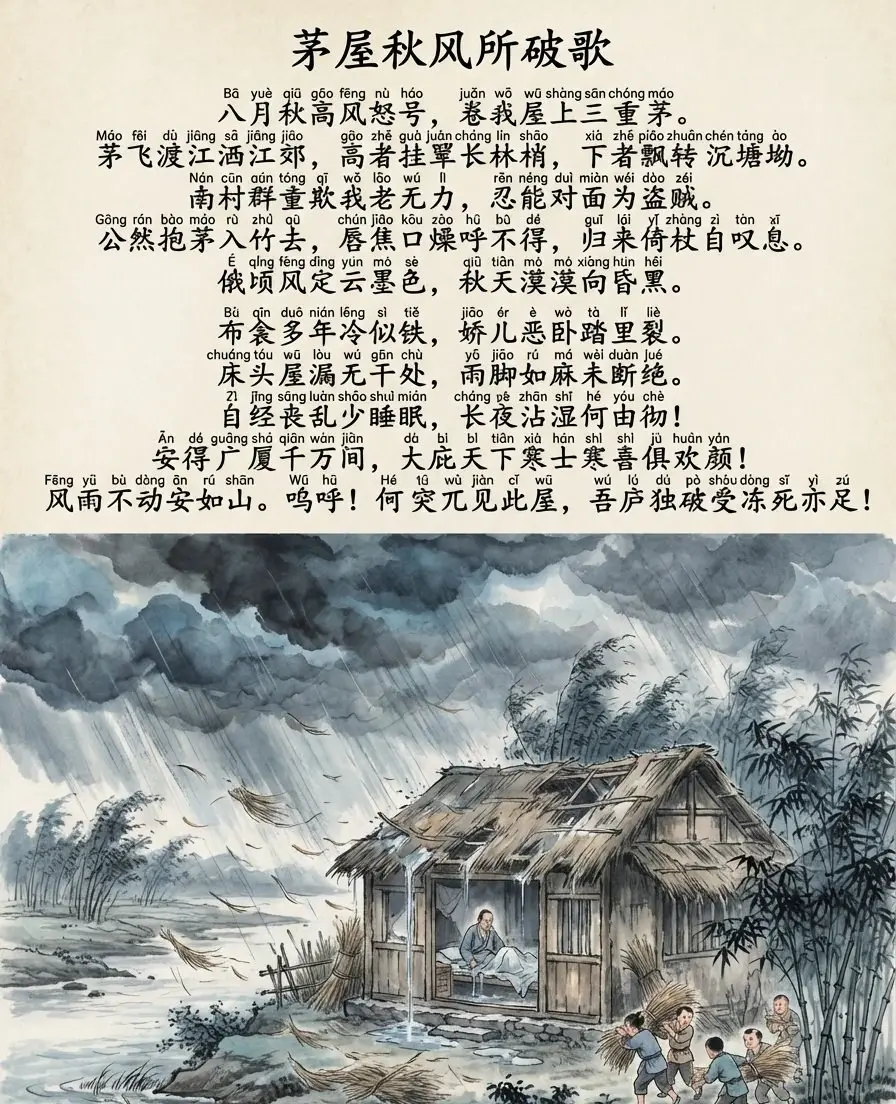 茅屋秋风所破歌
Bā yuè qiū gāo fēng nù háo juǎn wō wū shàng sān chóng máo
八月秋高风怒号，卷我屋上三重茅。
Máo fēi dù jiāng sā jiāng jiāo gāo zhě guà juàn cháng lín shāo xià zhě piāo zhuǎn chén táng ào
茅飞渡江洒江郊，高者挂罥长林梢，下者飘转沉塘坳。
Nán cūn qún tóng qī wǒ lǎo wú lì rěn néng duì miàn wéi dào zéi
南村群童欺我老无力，忍能对面为盗贼。
Gōng rán bào máo rù zhú qù chún jiāo kǒu zào hū bù dé guī lái yǐ zhàng zì tàn xī
公然抱茅入竹去，唇焦口燥呼不得，归来倚杖自叹息。
É qǐng fēng dìng yún mò sè qiū tiān mò mó xiàng hūn hēi
俄顷风定云墨色，秋天漠漠向昏黑。
Bù qīn duō nián lěng sì tiě jiāo ér è wò tà lǐ liè
布衾多年冷似铁，娇儿恶卧踏里裂。
chuáng tóu wū lòu wú gān chù yǔ jiǎo rú má wèi duàn jué
床头屋漏无干处，雨脚如麻未断绝。
Zì jīng sāng luàn shǎo shuì mián cháng yè zhān shī hé yóu chè
自经丧乱少睡眠，长夜沾湿何由彻！
Ān dé guǎng shà qiān wàn jiān dà bì tiān xià hán shì shì jù huān yán
安得广厦千万间，大庇天下寒士寒喜俱欢颜！
Fēng yǔ bù dòng ān rú shān Wū hū Hé wù jiàn cǐ wū wú lú dú pò shòu dòng sǐ yì zú
风雨不动安如山。呜呼！何突兀见此屋，吾庐独破受冻死亦足！